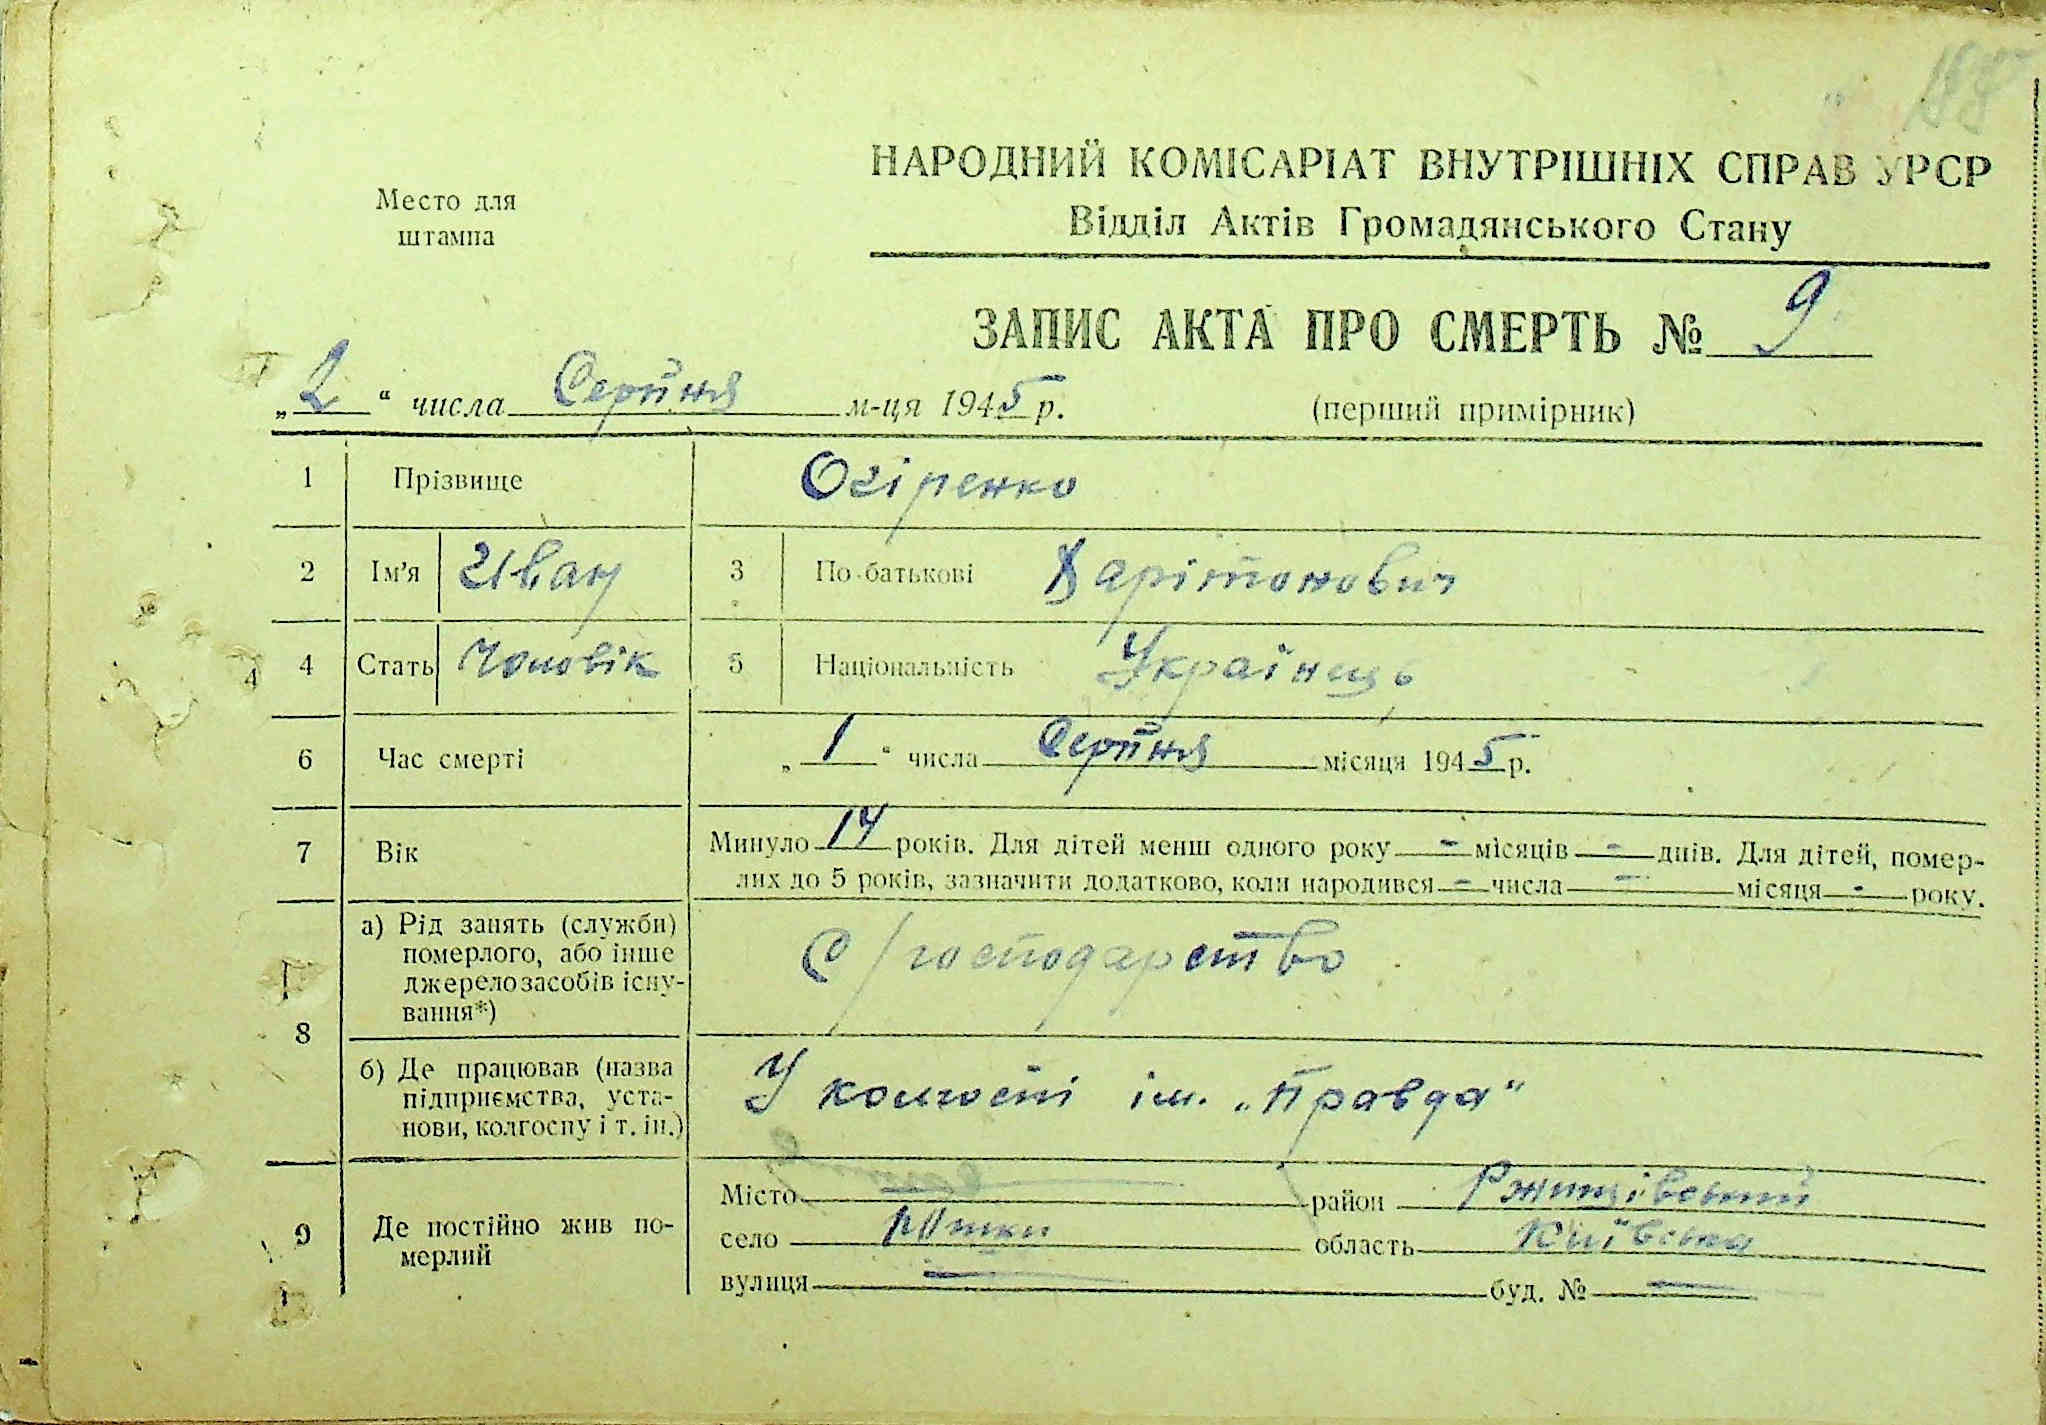 188
НАРОДНИЙ КОМІСАРІАТ ВНУТРІШНІХ СПРАВ УРСР
Место для
штампа
Відділ Актів Громадянського Стану
ЗАПИС АКТА ПРО СМЕРТЬ № 9
„2“ числа Серпня м-ця 1945 р.
(перший примірник)
1 Прізвище Огіренко
2 Ім'я Иван 3 По-батькові Харітонович
4 Стать Чоловік 5 Національність Українець
6 Час смерті „1“ числа Серпня місяця 1945 р.
7 Вік Минуло 14 років. Для дітей менш одного року - місяців - днів. Для дітей, помер-
лих до 5 років, зазначити додатково, коли народився - числа - місяця - року.
8 а) Рід занять (служби)
померлого, або інше
джерело засобів існу-
вання*)
С/господарство
б) Де працював (назва
підприємства, уста-
нови, колгоспу і т. ін.)
У колгоспі ім. „Правда“
9 Де постійно жив по-
мерлий
Місто — район Ржищівський
село Юшки область Київська
вулиця — буд. № —